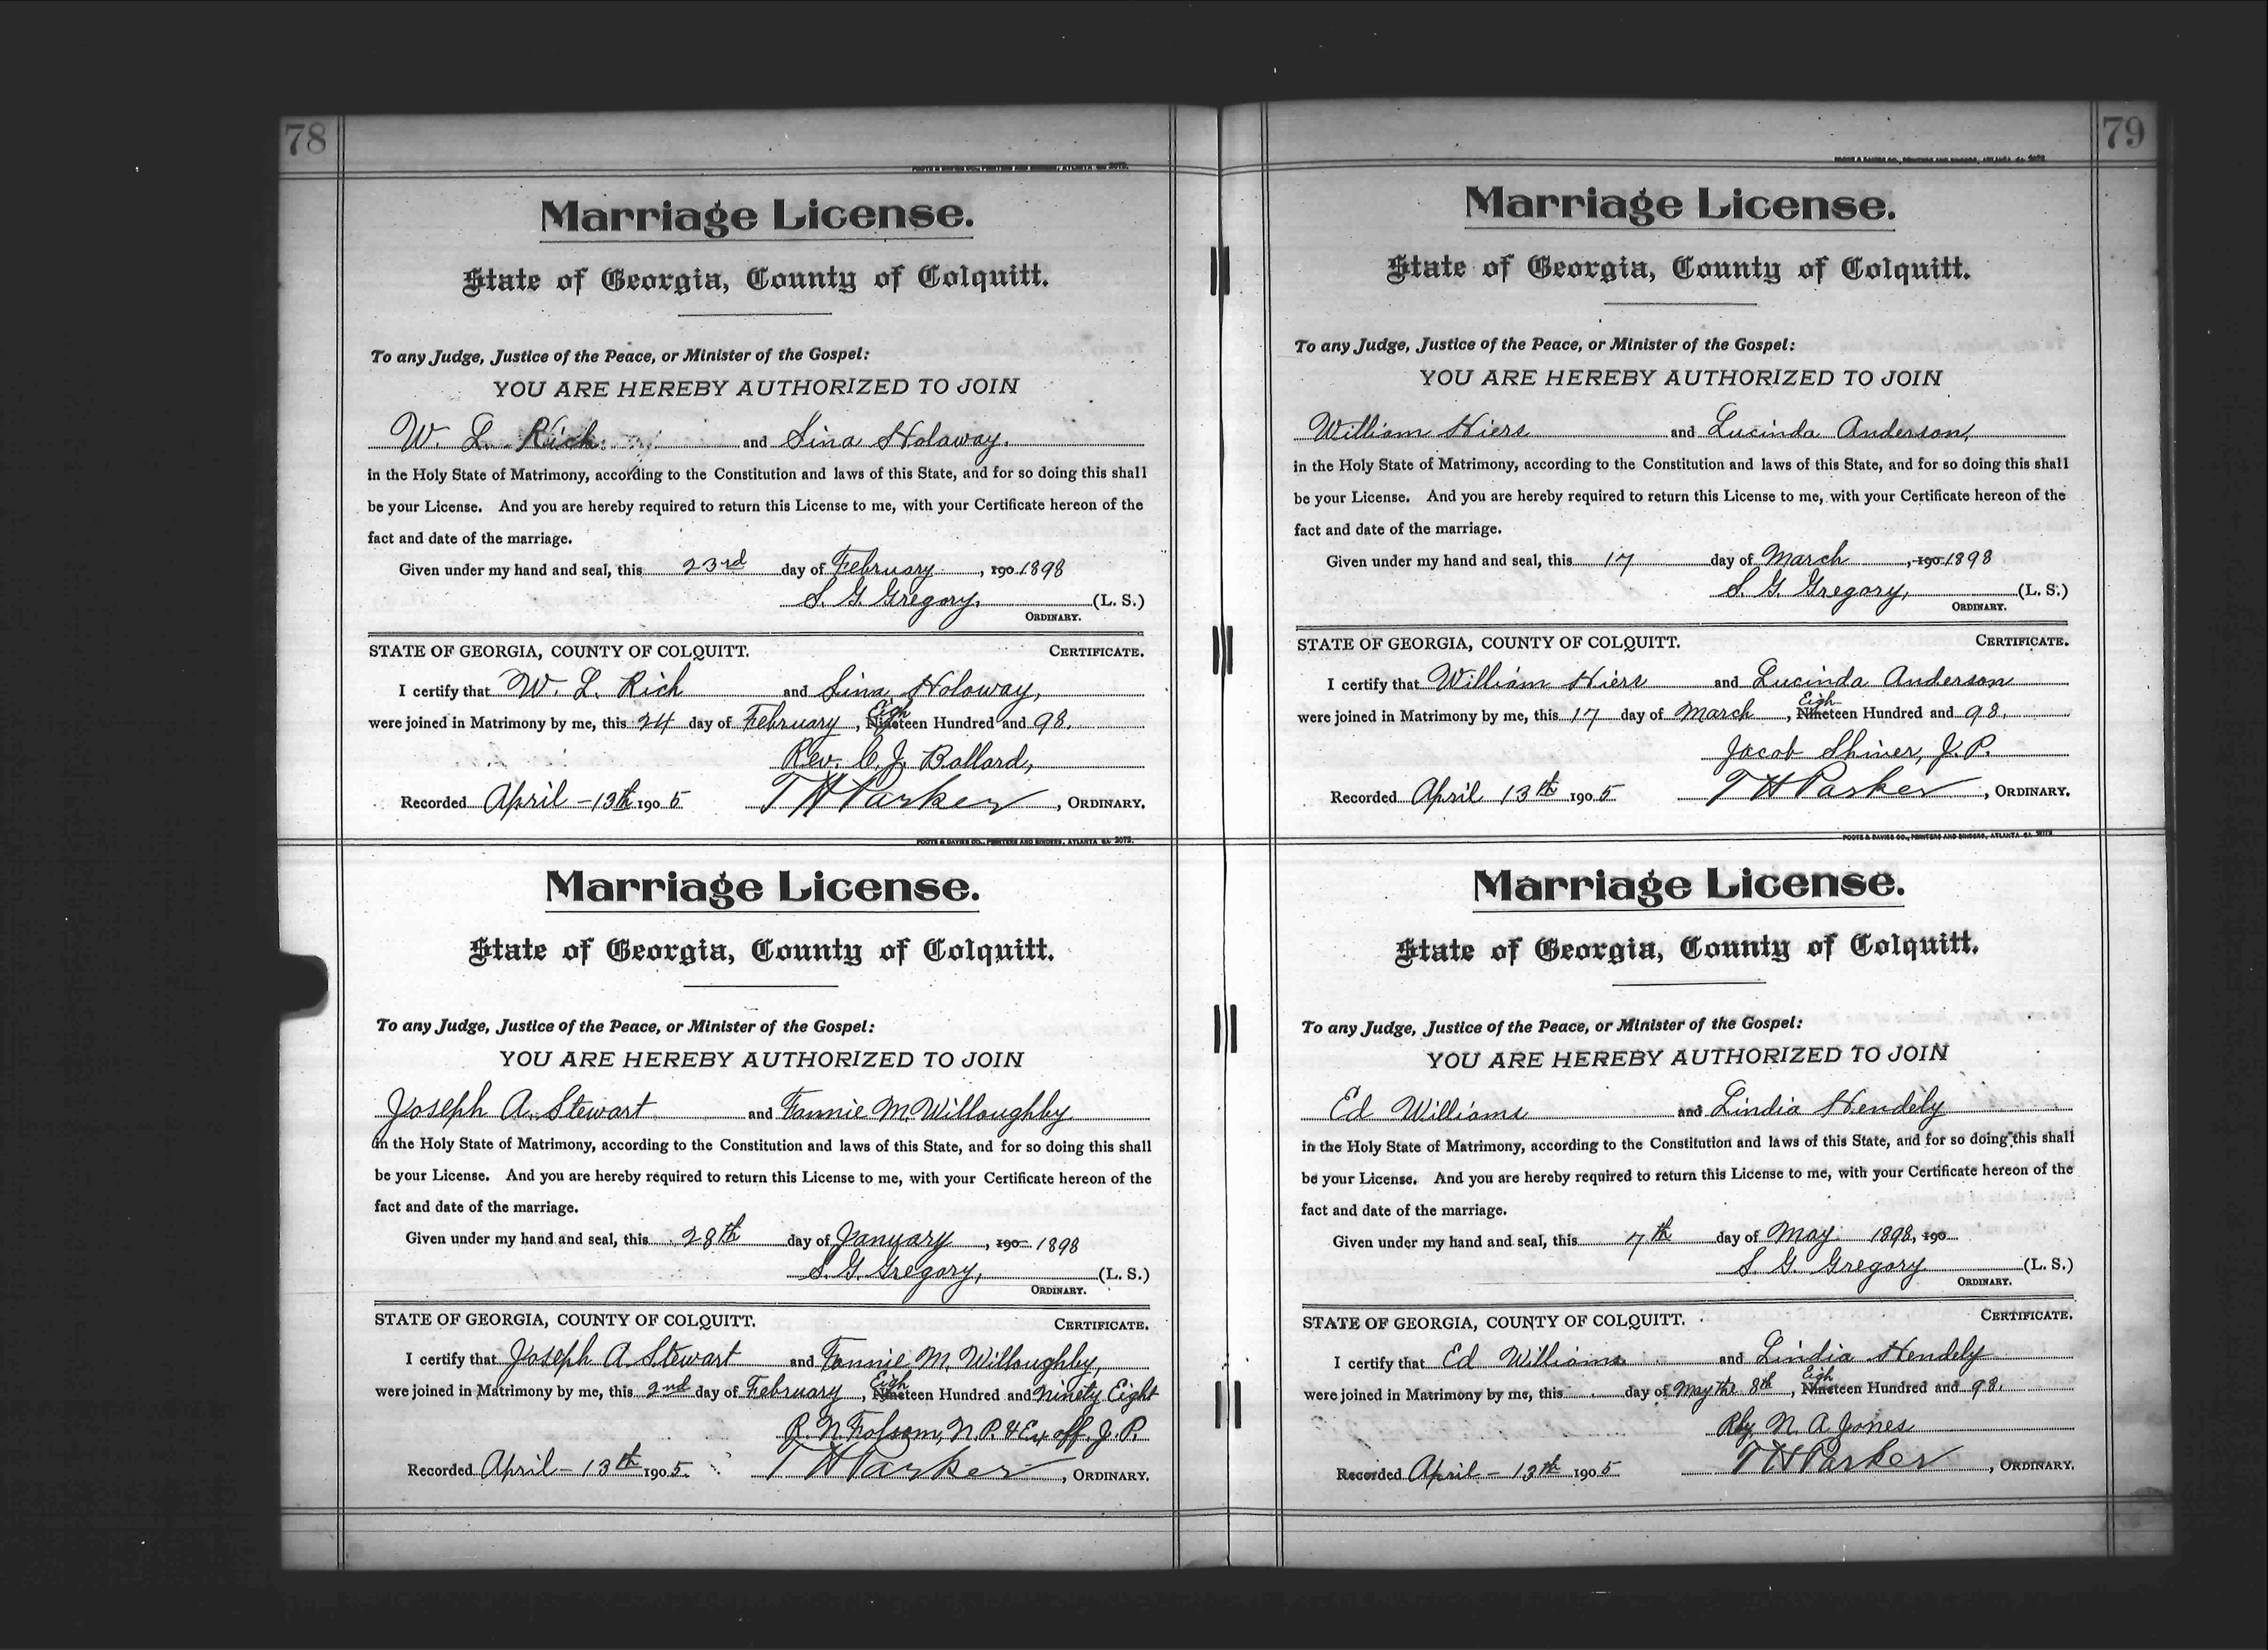 78
FOOTE & DAVIES CO., PRINTERS AND BINDERS, ATLANTA GA. 2072.
Marriage License.
State of Georgia, County of Colquitt.
To any Judge, Justice of the Peace, or Minister of the Gospel:
YOU ARE HEREBY AUTHORIZED TO JOIN
W. L. Rich and Sina Holaway.
in the Holy State of Matrimony, according to the Constitution and laws of this State, and for so doing this shall
be your License. And you are hereby required to return this License to me, with your Certificate hereon of the
fact and date of the marriage.
Given under my hand and seal, this 23rd day of February, 190 1898
S. G. Gregory. (L. S.)
ORDINARY.
STATE OF GEORGIA, COUNTY OF COLQUITT. CERTIFICATE.
I certify that W. L. Rich and Sina Holoway,
were joined in Matrimony by me, this 24 day of February, Eigh Nineteen Hundred and 98.
Rev. C. J. Ballard,
Recorded April - 13th 1905 T H Parker, ORDINARY.
FOOTE & DAVIES CO., PRINTERS AND BINDERS, ATLANTA GA. 2072.
Marriage License.
State of Georgia, County of Colquitt.
To any Judge, Justice of the Peace, or Minister of the Gospel:
YOU ARE HEREBY AUTHORIZED TO JOIN
Joseph A. Stewart and Fannie M. Willoughby
in the Holy State of Matrimony, according to the Constitution and laws of this State, and for so doing this shall
be your License. And you are hereby required to return this License to me, with your Certificate hereon of the
fact and date of the marriage.
Given under my hand and seal, this 28th day of January, 190 1898
S. G. Gregory, (L. S.)
ORDINARY.
STATE OF GEORGIA, COUNTY OF COLQUITT. CERTIFICATE.
I certify that Joseph A Stewart and Fannie M. Willoughby,
were joined in Matrimony by me, this 2nd day of February, Eigh Nineteen Hundred and Ninety Eight
R. N. Folsom, N. P. & Ex off. J. P.
Recorded April - 13th 1905. T H Parker, ORDINARY.
79
FOOTE & DAVIES CO., PRINTERS AND BINDERS, ATLANTA GA. 2072
Marriage License.
State of Georgia, County of Colquitt.
To any Judge, Justice of the Peace, or Minister of the Gospel:
YOU ARE HEREBY AUTHORIZED TO JOIN
William Hiers and Lucinda Anderson,
in the Holy State of Matrimony, according to the Constitution and laws of this State, and for so doing this shall
be your License. And you are hereby required to return this License to me, with your Certificate hereon of the
fact and date of the marriage.
Given under my hand and seal, this 17 day of March, 190 1898
S. G. Gregory, (L. S.)
ORDINARY.
STATE OF GEORGIA, COUNTY OF COLQUITT. CERTIFICATE.
I certify that William Hiers and Lucinda Anderson
were joined in Matrimony by me, this 17 day of March, Eigh Nineteen Hundred and 98.
Jacob Shiner, J. P.
Recorded April 13th 1905 T H Parker, ORDINARY.
FOOTE & DAVIES CO., PRINTERS AND BINDERS, ATLANTA GA. 2072
Marriage License.
State of Georgia, County of Colquitt.
To any Judge, Justice of the Peace, or Minister of the Gospel:
YOU ARE HEREBY AUTHORIZED TO JOIN
Ed Williams and Lindia Hendely
in the Holy State of Matrimony, according to the Constitution and laws of this State, and for so doing this shall
be your License. And you are hereby required to return this License to me, with your Certificate hereon of the
fact and date of the marriage.
Given under my hand and seal, this 7th day of May 1898, 190
S. G. Gregory (L. S.)
ORDINARY.
STATE OF GEORGIA, COUNTY OF COLQUITT. CERTIFICATE.
I certify that Ed Williams and Lindia Hendely
were joined in Matrimony by me, this day of May the 8th, Eigh Nineteen Hundred and 98.
N. A. Jones
Recorded April - 13th 1905 T H Parker, ORDINARY.